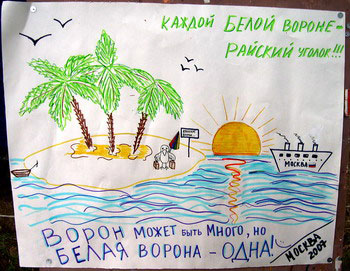 КАЖДОЙ БЕЛОЙ ВОРОНЕ -
РАЙСКИЙ УГОЛОК!!!
МОСКВА
ВОРОН МОЖЕТ БЫТЬ МНОГО, НО
БЕЛАЯ ВОРОНА - ОДНА!
МОСКВА
2007